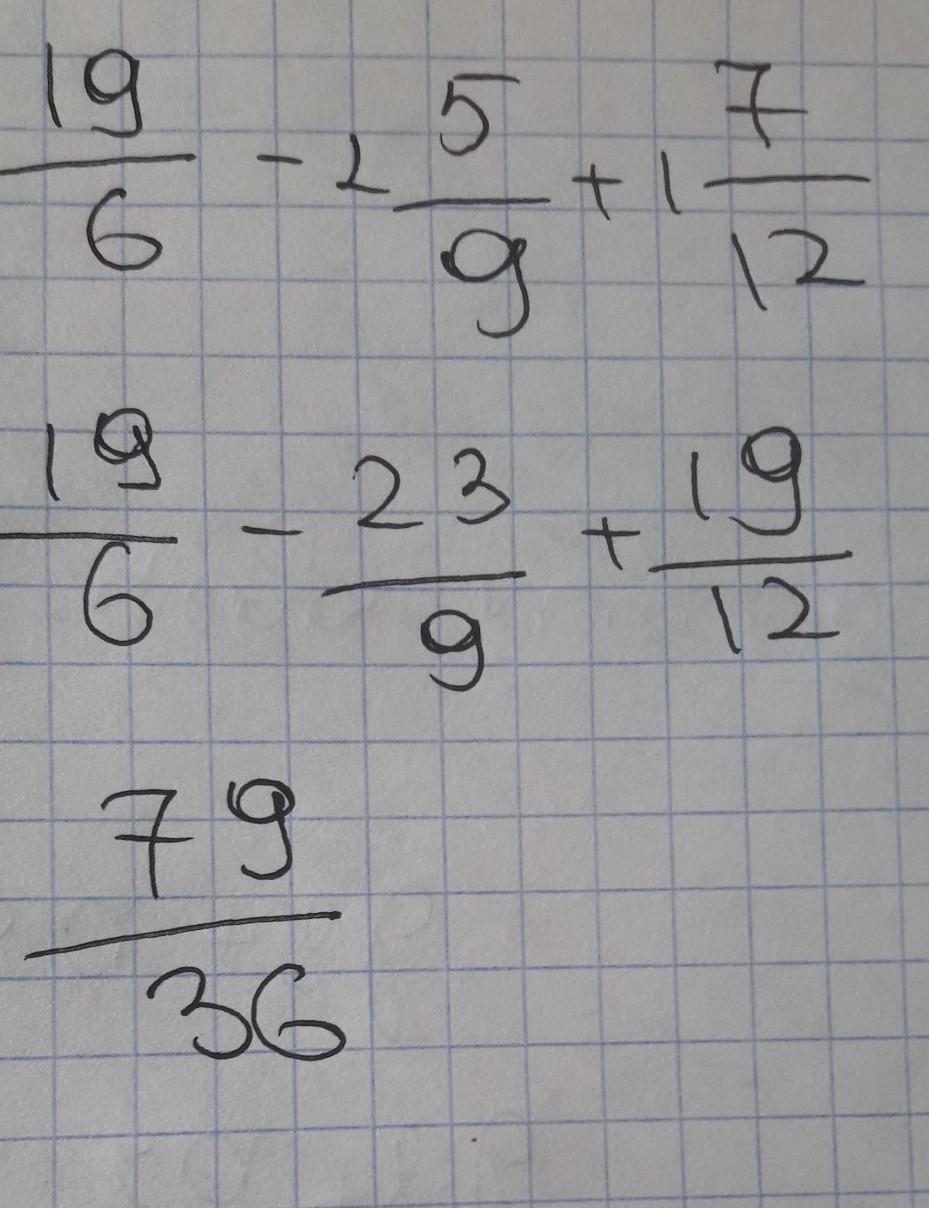 19/6 - 2 5/9 + 1 7/12
19/6 - 23/9 + 19/12
79/36